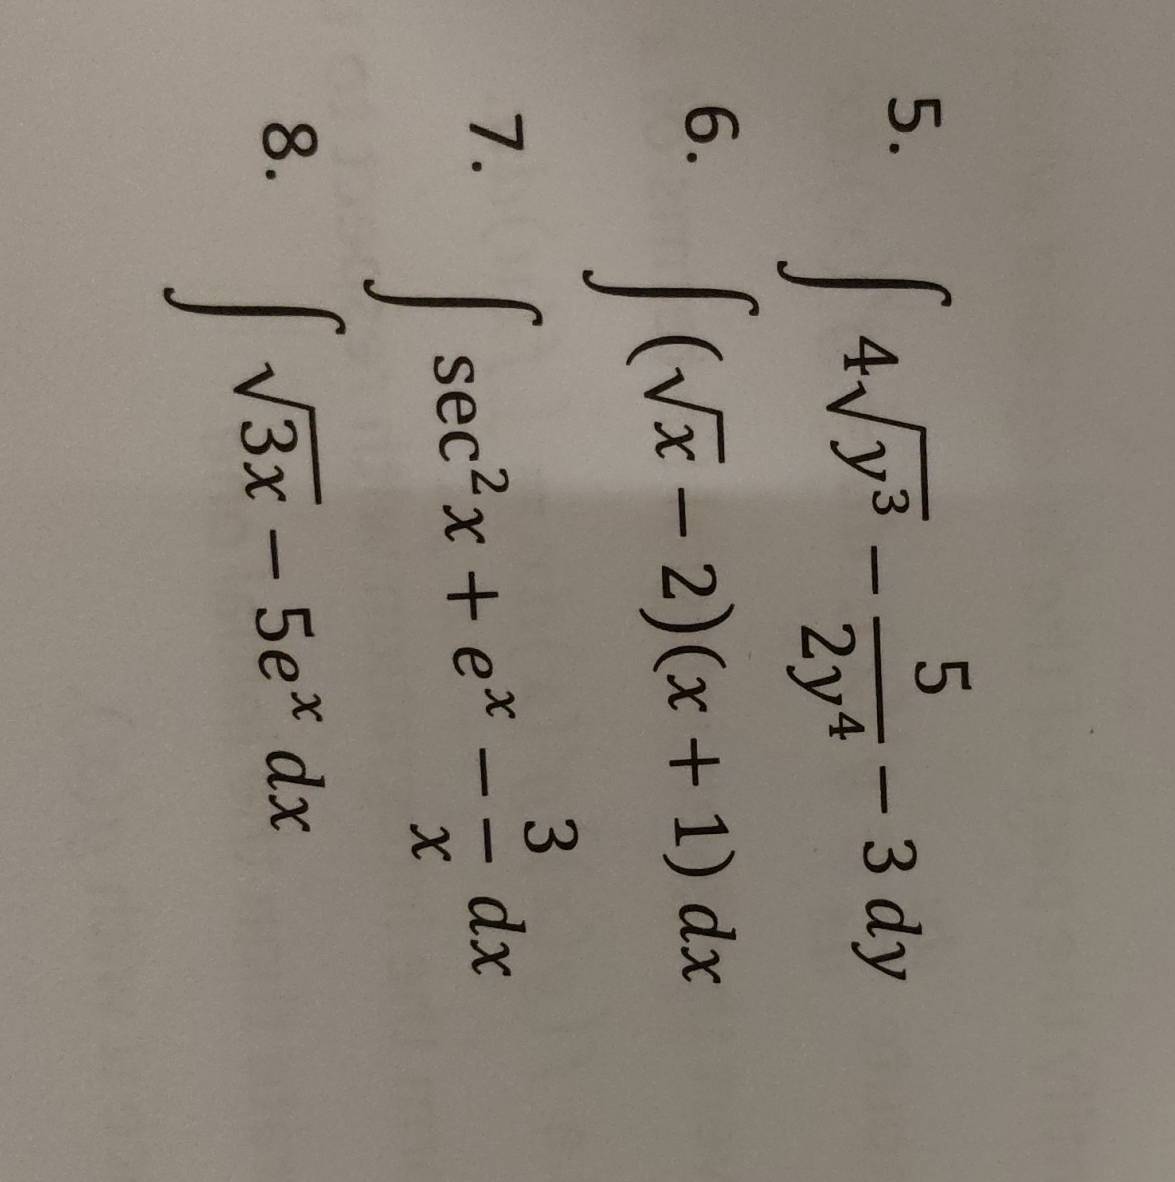 5. ∫ 4√(y³) − 5/(2y⁴) − 3 dy
6. ∫ (√x − 2)(x + 1) dx
7. ∫ sec²x + eˣ − 3/x dx
8. ∫ √(3x) − 5eˣ dx